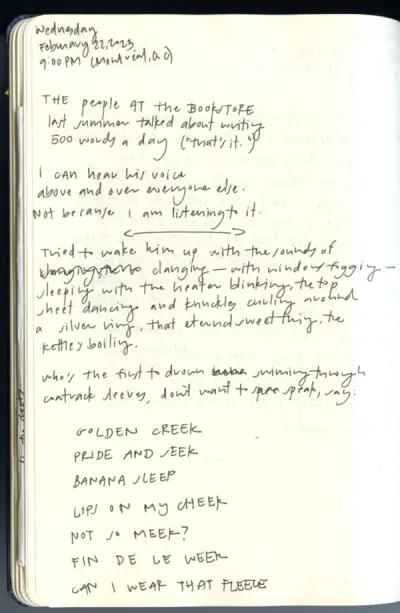 Wednesday
February 22, 2023
9:00 PM (Montréal, QC)
THE people AT the BOOKSTORE
last summer talked about writing
500 words a day ("that's it.")
I CAN hear his voice
above and over everyone else.
Not because I am listening to it.
Tried to wake him up with the sounds of
clanging — with windows —
sleeping with the heater blinking, the top
sheet dancing and knuckles curling around
a silver ring, that eternal sweet thing, the
kettle's boiling.
who's the first to drown swimming through
sleeves, don't want to speak, say:
GOLDEN CREEK
PRIDE AND SEEK
BANANA SLEEP
LIPS ON MY CHEEK
NOT SO MEEK?
FIN DE LE WEEK
CAN I WEAR THAT FLEECE